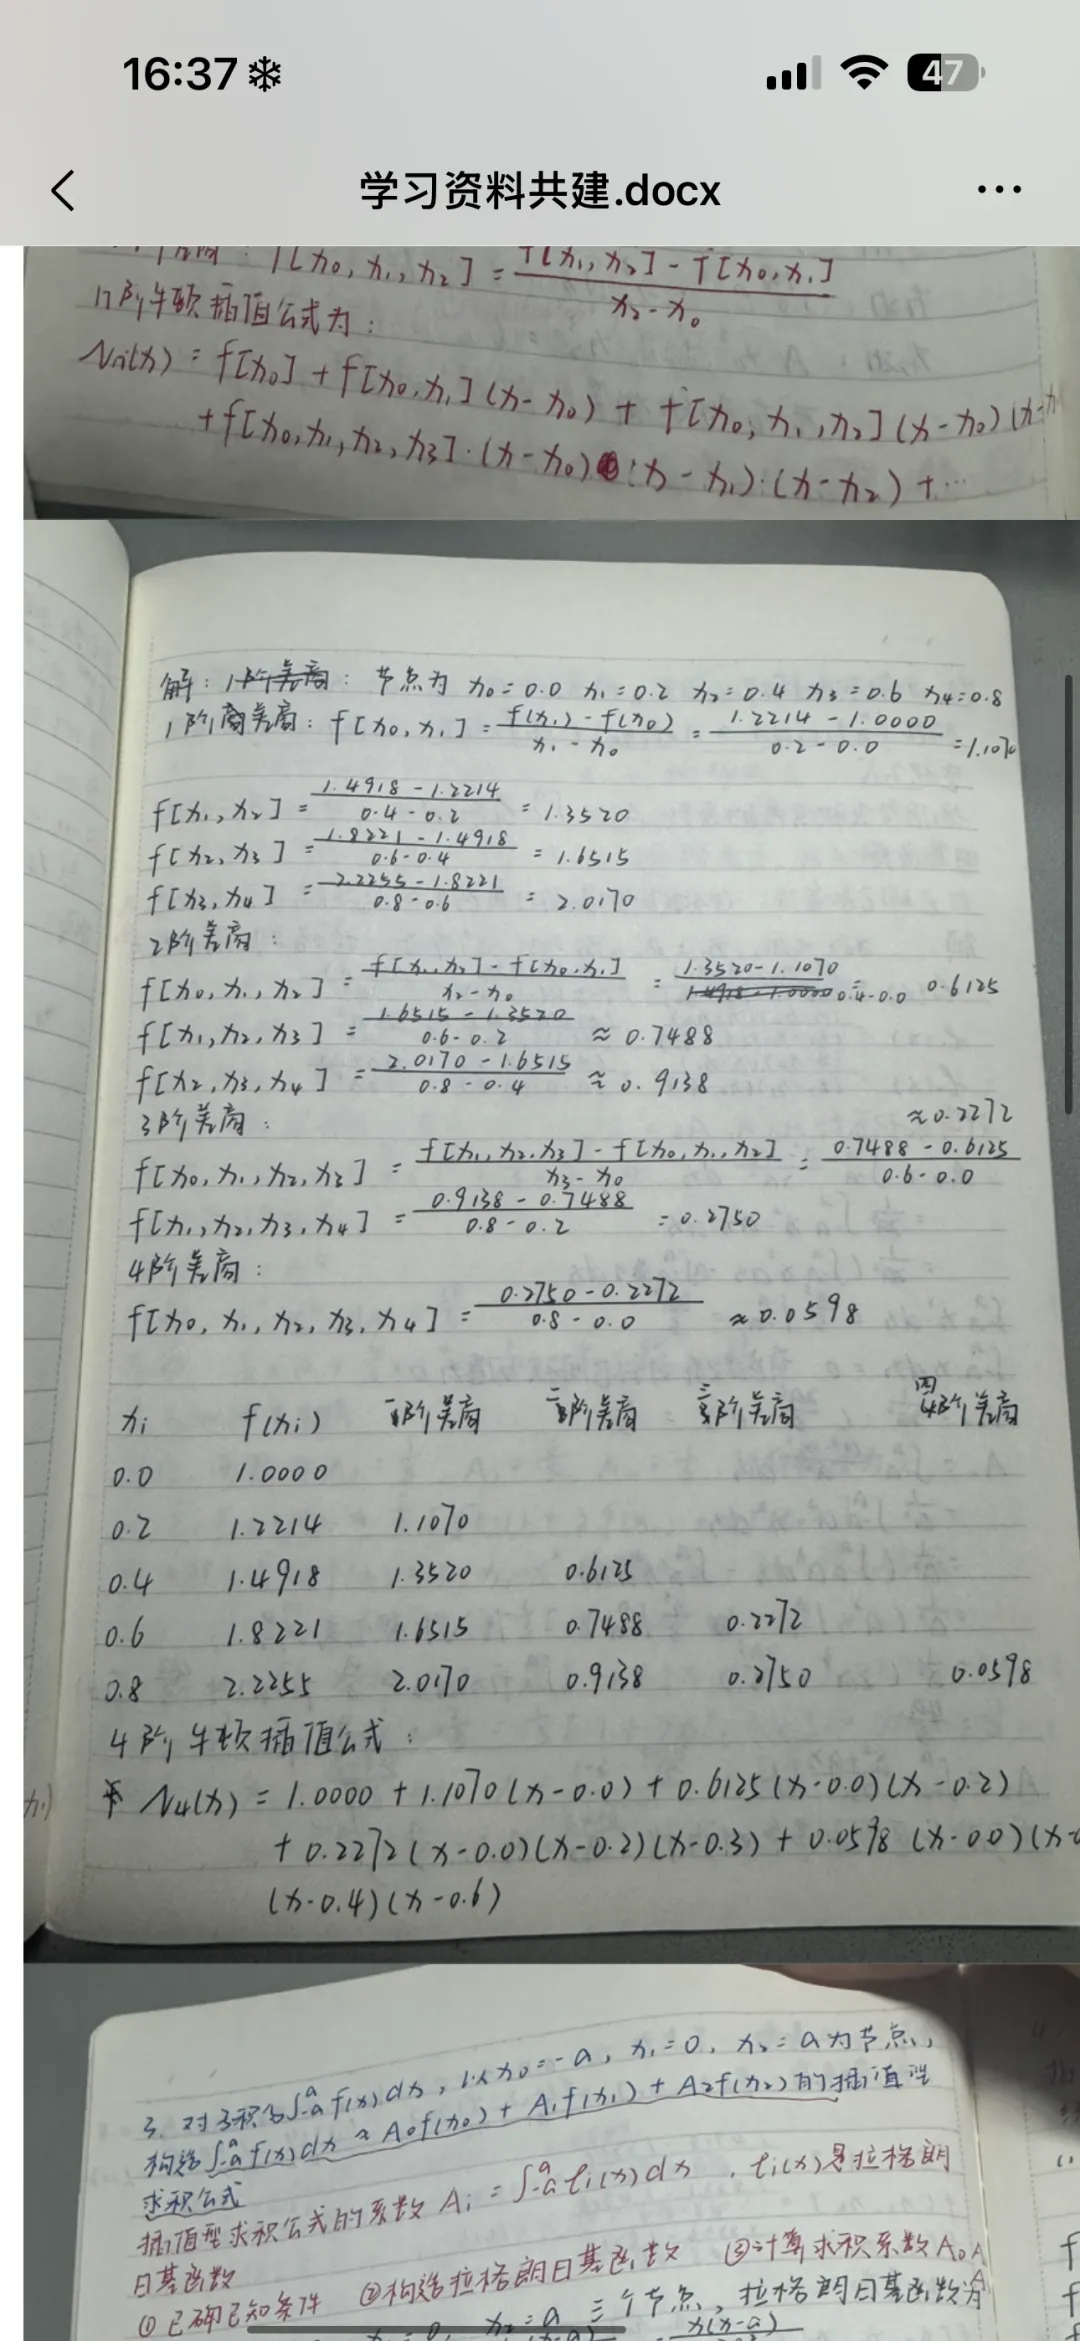 16:37
47
学习资料共建.docx
f[x₀, x₁, x₂] = f[x₁, x₂] - f[x₀, x₁] / x₂ - x₀
n阶牛顿插值公式为：
Nn(x) = f[x₀] + f[x₀, x₁](x-x₀) + f[x₀, x₁, x₂](x-x₀)(x-x₁
+ f[x₀, x₁, x₂, x₃]·(x-x₀)·(x-x₁)·(x-x₂) + …
解：1阶差商：节点为 x₀=0.0 x₁=0.2 x₂=0.4 x₃=0.6 x₄=0.8
1阶差商：f[x₀, x₁] = f(x₁) - f(x₀) / x₁ - x₀ = 1.2214 - 1.0000 / 0.2 - 0.0 = 1.1070
f[x₁, x₂] = 1.4918 - 1.2214 / 0.4 - 0.2 = 1.3520
f[x₂, x₃] = 1.8221 - 1.4918 / 0.6 - 0.4 = 1.6515
f[x₃, x₄] = 2.2255 - 1.8221 / 0.8 - 0.6 = 2.0170
2阶差商：
f[x₀, x₁, x₂] = f[x₁, x₂] - f[x₀, x₁] / x₂ - x₀ = 1.3520 - 1.1070 / 0.4 - 0.0 = 0.6125
f[x₁, x₂, x₃] = 1.6515 - 1.3520 / 0.6 - 0.2 ≈ 0.7488
f[x₂, x₃, x₄] = 2.0170 - 1.6515 / 0.8 - 0.4 ≈ 0.9138
3阶差商：
f[x₀, x₁, x₂, x₃] = f[x₁, x₂, x₃] - f[x₀, x₁, x₂] / x₃ - x₀ = 0.7488 - 0.6125 / 0.6 - 0.0 ≈ 0.2272
f[x₁, x₂, x₃, x₄] = 0.9138 - 0.7488 / 0.8 - 0.2 = 0.2750
4阶差商：
f[x₀, x₁, x₂, x₃, x₄] = 0.2750 - 0.2272 / 0.8 - 0.0 ≈ 0.0598
xi f(xi) 一阶差商 二阶差商 三阶差商 四阶差商
0.0 1.0000
0.2 1.2214 1.1070
0.4 1.4918 1.3520 0.6125
0.6 1.8221 1.6515 0.7488 0.2272
0.8 2.2255 2.0170 0.9138 0.2750 0.0598
4阶牛顿插值公式：
N₄(x) = 1.0000 + 1.1070(x-0.0) + 0.6125(x-0.0)(x-0.2)
+ 0.2272(x-0.0)(x-0.2)(x-0.3) + 0.0598(x-0.0)(x-0
(x-0.4)(x-0.6)
3. 对于积分∫₋ₐᵃf(x)dx, 以x₀=-a, x₁=0, x₂=a为节点,
构造∫₋ₐᵃf(x)dx ≈ A₀f(x₀) + A₁f(x₁) + A₂f(x₂)的插值型
求积公式
插值型求积公式的系数 Ai = ∫₋ₐᵃ li(x)dx, li(x)是拉格朗
日基函数
①已确已知条件 ②构造拉格朗日基函数 ③计算求积系数A₀A
x₂=a 三个节点, 拉格朗日基函数为
x(x-a)